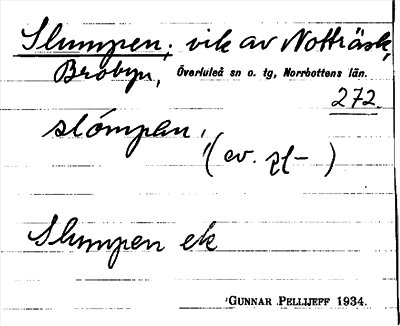 Slumpen; vik av Notträsk,
Brobyn, Överluleå sn o. tg, Norrbottens län.
272.
slómpan,
(ev. sl- )
Slumpen ek
GUNNAR PELLIJEFF 1934.